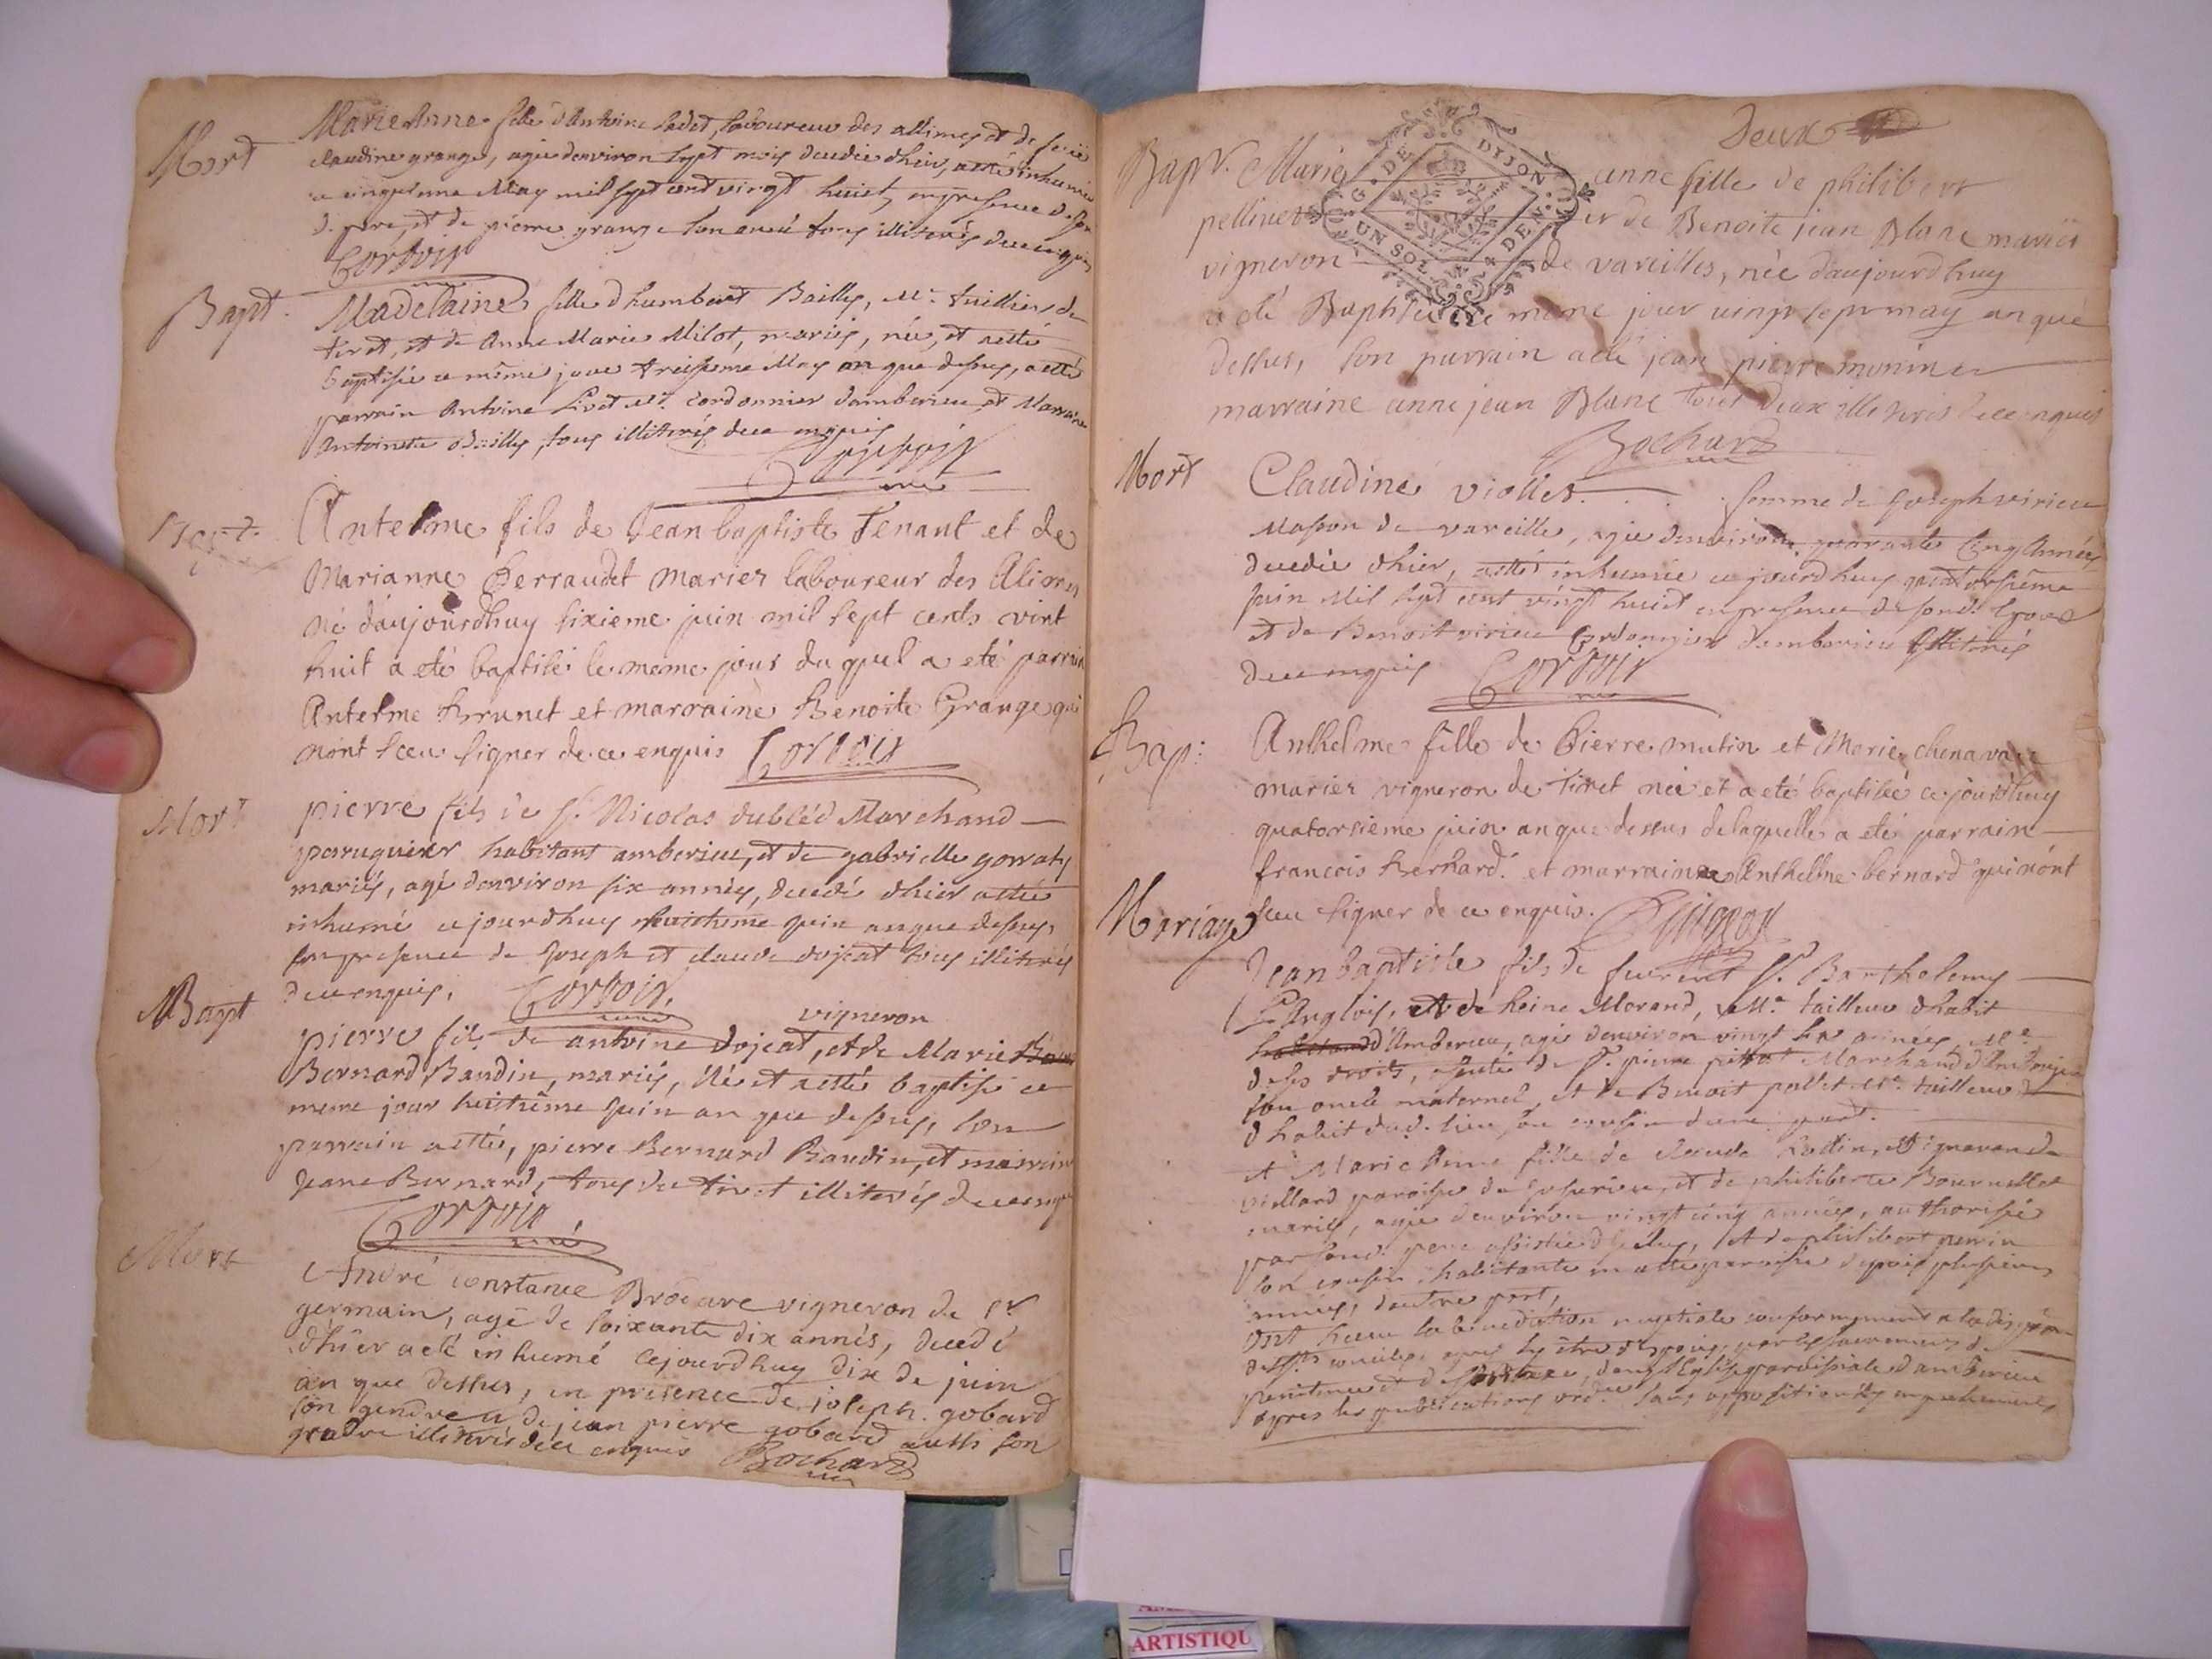 Mort
Marie Anne fille d'Antoine Cadet, laboureur des allimes et de feüe
claudine grange, agée denviron sept mois decedée dhier, aetté inhumée
ce cinquieme May mil sept cent vingt huict, en presence de son
d. pere, et de pierre grange son ayeul tous illiterés de ce enquis
Bapt.
Madelaine fille d'humbert Bailly, Mr. tuillier de
tiret, et de Anne Marie Milot, mariés, née, et aetté
baptisée ce même jour treisieme May an que dessus, a etté
parrain Antoine Livet Mr. Cordonnier d'amberieu, et Marraine
Antoinette Bailly, tous illiterés de ce enquis
Bapt.
Antelme fils de Jean baptiste Tenant et de
Marianne Perraudet mariez laboureur des Alimes
né d'aujourdhuy sixieme juin mil sept cents vint
huit a eté baptisé le meme jour du quel a eté parrain
Antelme Brunet et marraine Benoite Grange qui
n'ont sceu signer de ce enquis
Mort
pierre fils de Sr. Nicolas dubléd Marchand
perruquier habitant amberieu, et de gabrielle gorraty
mariés, agé denviron six années, decedé dhier aetté
inhumé ce jourdhuy huictieme juin an que dessus,
en presence de Joseph et claude dojeat tous illiterés
de ce enquis,
Bapt
vigneron
pierre fils de antoine dojeat, et de Marie
Bernard Baudin, mariés, né et aetté baptisé ce
meme jour huitième Juin an que dessus, son
parrain aetté, pierre Bernard Baudin, et marraine
Jeane Bernard, tous du tiret illiterés de ce enquis
Mort
André constance Brocure vigneron de St
germain, agé de soixante dix annés, decedé
d'hier a eté inhumé cejourdhuy dix de juin
an que dessus, en presence de joseph gobard
son gendre et de jean pierre gobard aussi son
gendre illiterés de ce enquis Bochard
deux
Bapt. Marie anne fille de philibert
pellivet et de Benoite jean Blanc mariés
vigneron de vareilles, née d'aujourdhuy
a eté Baptisée le même jour vingt sept may an que
dessus, son parrain a eté jean pierre monin et
marraine anne jean Blanc tous deux illiterés de ce enquis
G. DE DIJON
UN SOL 4 DEN.
Bochard
Mort
Claudine viollet femme de Joseph virieu
Masson de vareille, agée denviron quarante Cinq Années
decedée dhier, aetté inhumée ce jourdhuy quatorsième
Juin Mil sept cent vingt huict en presence de son d. Epoux
et de Benoit virieu Cordonnier d'amberieu illiterés
de ce enquis
Bap:
Anthelme fille de Pierre mutin et Marie chenavaz
mariez vigneron de Tiret née et a eté baptisée ce jourdhuy
quatorsieme juin an que dessus de laquelle a eté parrain
francois Bernard et marraine Anthelme bernard qui n'ont
sceu signer de ce enquis.
Mariage
Jean baptiste fils de Sr. Barthelemy
L'Anglois, et de Reine Morand, Mr. tailleur dhabit
d'Amberieu, agé denviron vingt six années, Mre
de ses droits, assisté de Sr. pierre Marchand d'Ambronay
son oncle maternel, et de Benoit pollet Mr. tailleur
d'habit dud. lieu son cousin d'une part.
et Marie Anne fille de Claude
viellard paroisse de et de philiberte Bournillet
mariés, agée denviron vingt cinq années, authorisée
par son d. pere assistée d'iceluy, et de philibert perrin
son cousin, habitante en cette paroisse depuis plusieurs
années, dautre part,
ont Receu la benediction nuptiale conformement a la disposition
penitence et de dans l'Eglise paroissiale d'amberieu
apres les publications ord. sans opposition ny empechement
ARTISTIQU